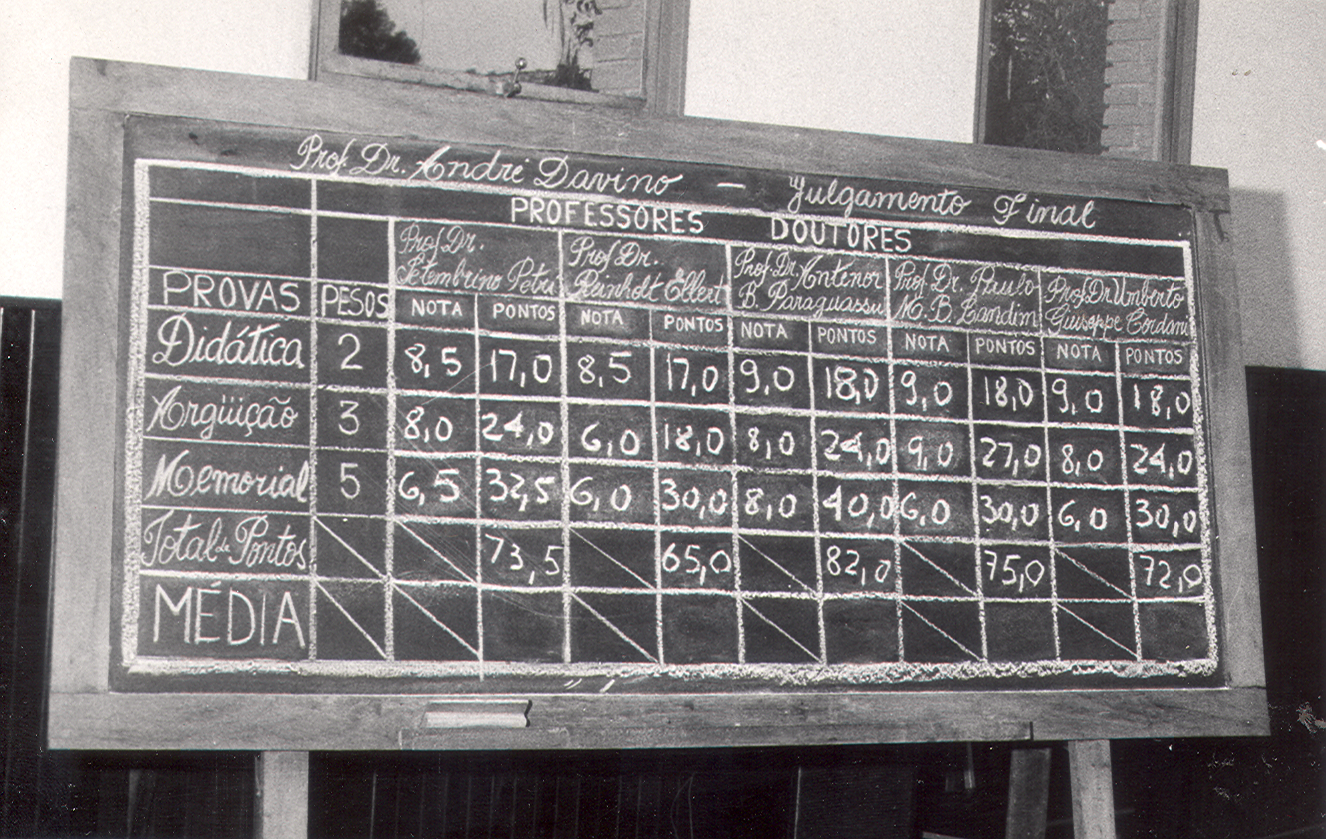 Prof. Dr. André Davino — Julgamento Final
PROFESSORES DOUTORES
Prof. Dr. Setembrino Petri Prof. Dr. Reinholt Ellert Prof. Dr. Antenor B. Paraguassu Prof. Dr. Paulo M. B. Landim Prof Dr Umberto Giuseppe Cordani
PROVAS PESOS NOTA PONTOS NOTA PONTOS NOTA PONTOS NOTA PONTOS NOTA PONTOS
Didática 2 8,5 17,0 8,5 17,0 9,0 18,0 9,0 18,0 9,0 18,0
Argüição 3 8,0 24,0 6,0 18,0 8,0 24,0 9,0 27,0 8,0 24,0
Memorial 5 6,5 32,5 6,0 30,0 8,0 40,0 6,0 30,0 6,0 30,0
Total de Pontos 73,5 65,0 82,0 75,0 72,0
MÉDIA